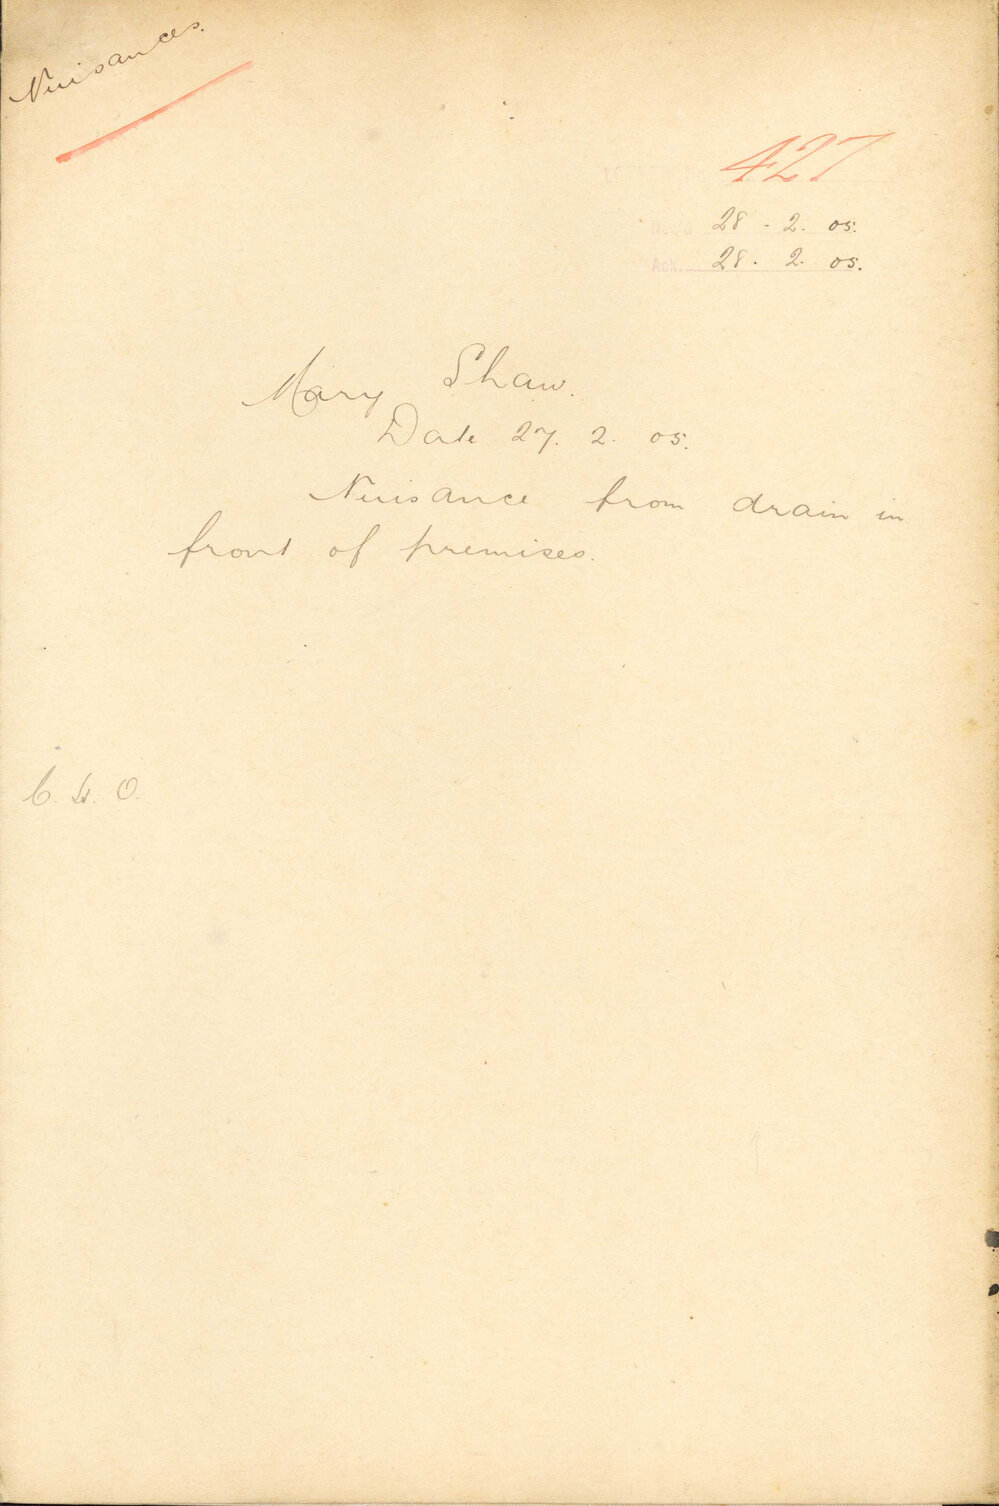 Nuisances.
LETTER No 427
Rec'd 28 - 2. 05.
Ack. 28. 2. 05.
Mary Shaw.
Date 27. 2. 05.
Nuisance from drain in
front of premises.
C. H. O.